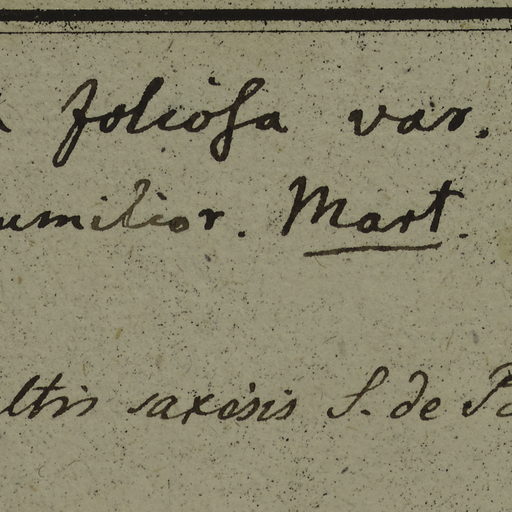 foliosa var.
umilior. Mart.
altis saxosis S. de